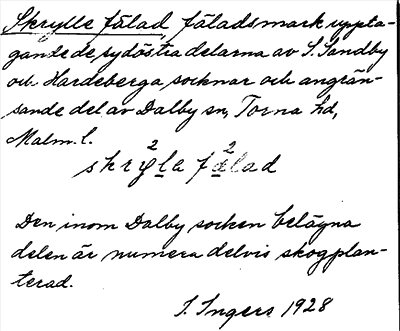 Skrylle fälad, fäladsmark uppta-
gande de sydöstra delarna av S. Sandby
och Hardeberga socknar och angrän-
sande del av Dalby sn, Torna hd,
Malm. l.
skrylla fälad
Den inom Dalby socken belägna
delen är numera delvis skogplan-
terad.
I. Ingers 1928